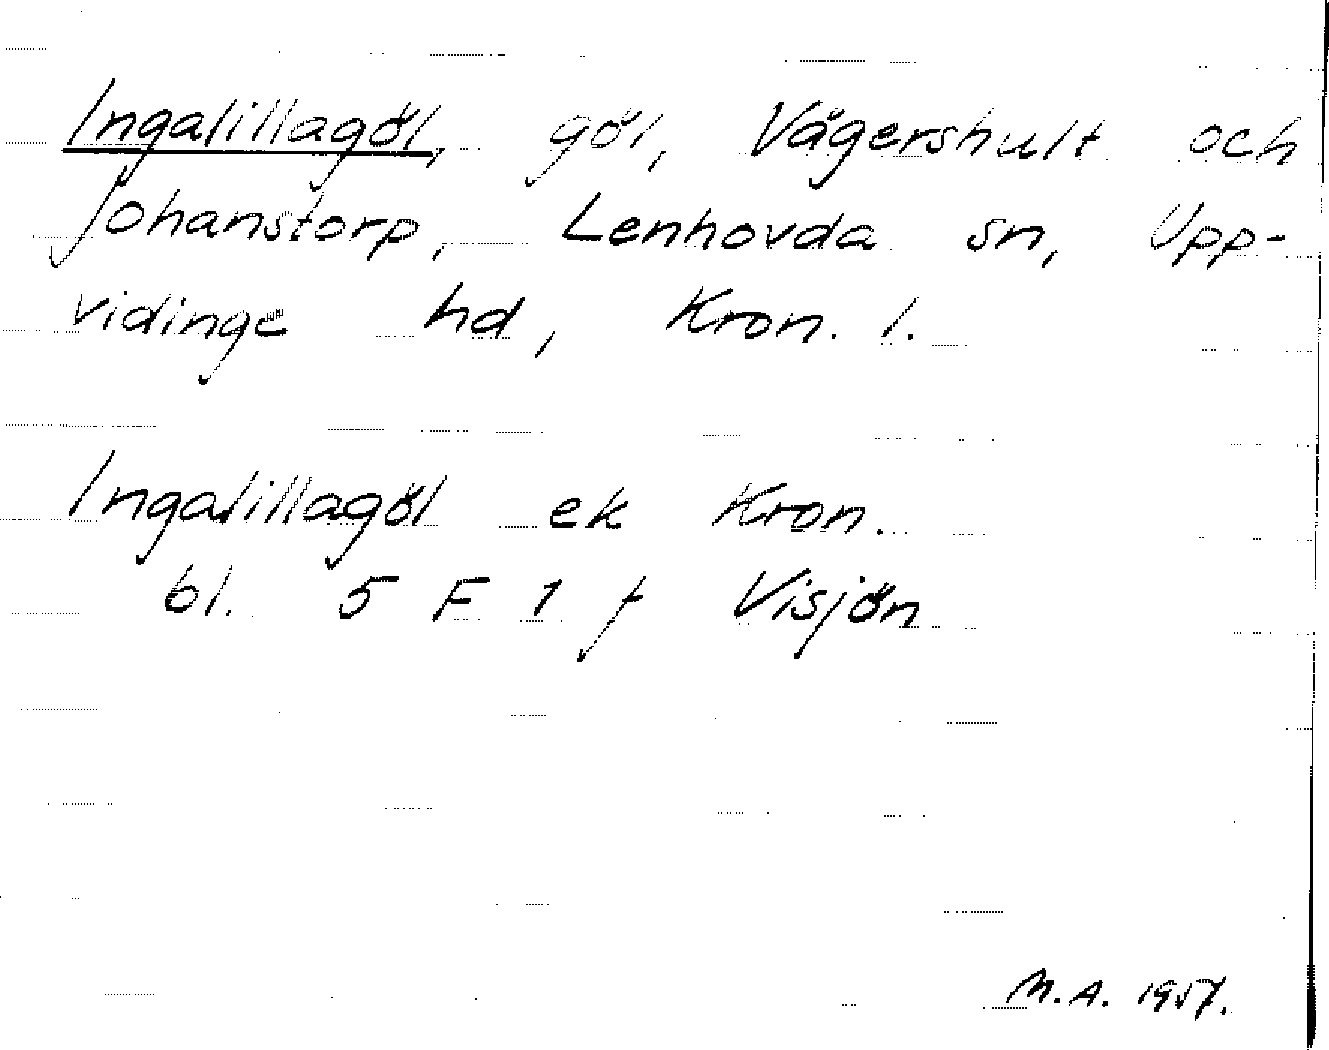 Ingalillagöl, göl, Vågershult och
Johanstorp, Lenhovda sn, Upp-
vidinge hd, Kron. l.
Ingalillagöl ek Kron.
bl. 5 F 1 f Visjön
M.A. 1957.